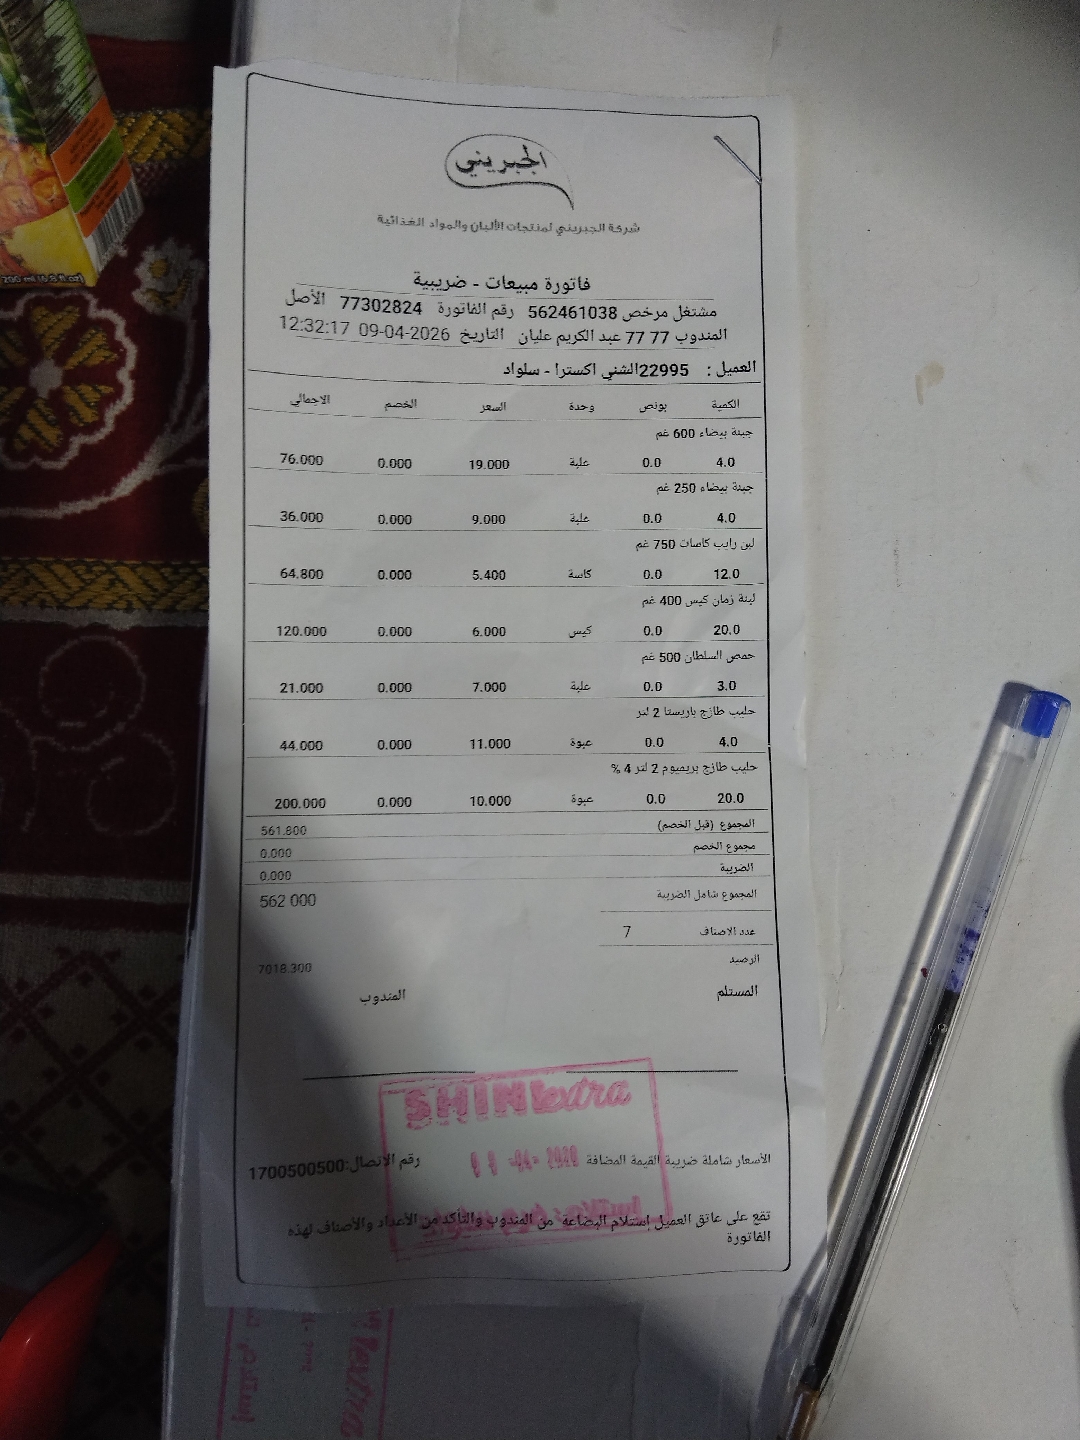 الجبريني
شركة الجبريني لمنتجات الألبان والمواد الغذائية
فاتورة مبيعات - ضريبية
مشتغل مرخص 562461038 رقم الفاتورة 77302824 الأصل
المندوب 77 77 عبد الكريم عليان التاريخ 09-04-2026 12:32:17
العميل : 22995الشني اكسترا - سلواد
الكمية بونص وحدة السعر الخصم الاجمالي
جبنة بيضاء 600 غم
4.0 0.0 علبة 19.000 0.000 76.000
جبنة بيضاء 250 غم
4.0 0.0 علبة 9.000 0.000 36.000
لبن رايب كاسات 750 غم
12.0 0.0 كاسة 5.400 0.000 64.800
لبنة زمان كيس 400 غم
20.0 0.0 كيس 6.000 0.000 120.000
حمص السلطان 500 غم
3.0 0.0 علبة 7.000 0.000 21.000
حليب طازج باريستا 2 لتر
4.0 0.0 عبوة 11.000 0.000 44.000
حليب طازج بريميوم 2 لتر 4 %
20.0 0.0 عبوة 10.000 0.000 200.000
المجموع (قبل الخصم) 561.800
مجموع الخصم 0.000
الضريبة 0.000
المجموع شامل الضريبة 562 000
عدد الاصناف 7
الرصيد 7018.300
المستلم المندوب
SHINI extra
الأسعار شاملة ضريبة القيمة المضافة رقم الاتصال:1700500500
تقع على عاتق العميل إستلام البضاعة من المندوب والتأكد من الأعداد والأصناف لهذه
الفاتورة
200 ml (6.8 fl oz)